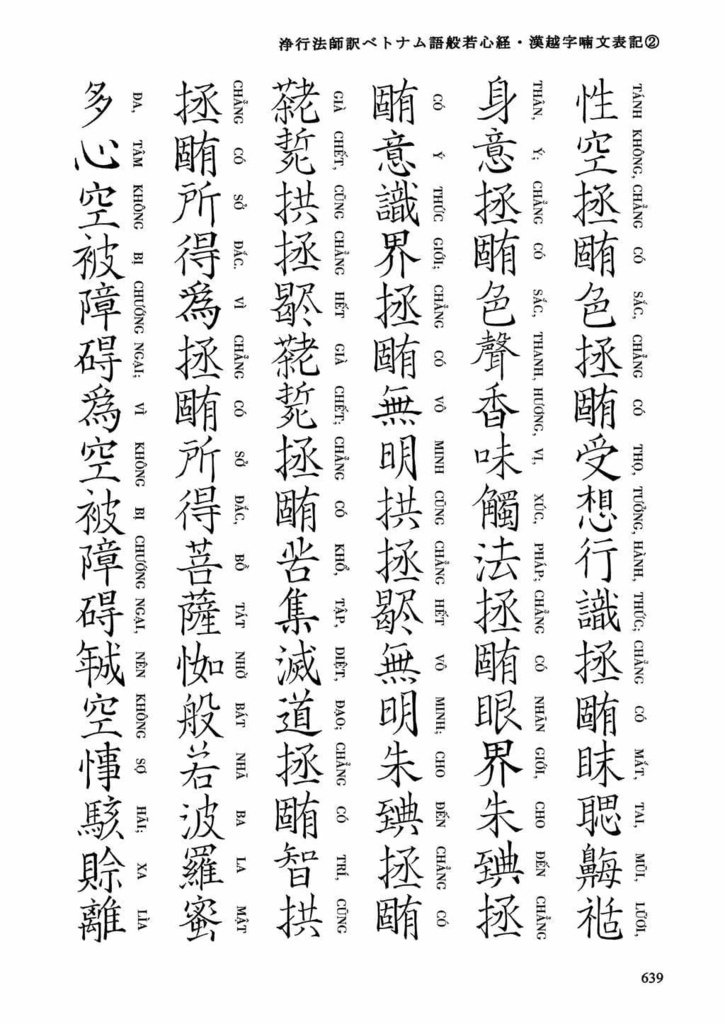 浄行法師訳ベトナム語般若心経・漢越字喃文表記②
性空拯𣎏色拯𣎏受想行識拯𣎏眜聰𪖫𥚇
TÁNH KHÔNG, CHẲNG CÓ SẮC, CHẲNG CÓ THỌ, TƯỞNG, HÀNH, THỨC; CHẲNG CÓ MẮT, TAI, MŨI, LƯỠI,
身意拯𣎏色聲香味觸法拯𣎏眼界朱𦤾拯
THÂN, Ý; CHẲNG CÓ SẮC, THANH, HƯƠNG, VỊ, XÚC, PHÁP; CHẲNG CÓ NHÃN GIỚI, CHO ĐẾN CHẲNG
𣎏意識界拯𣎏無明拱拯𣍊無明朱𦤾拯𣎏
CÓ Ý THỨC GIỚI; CHẲNG CÓ VÔ MINH CŨNG CHẲNG HẾT VÔ MINH; CHO ĐẾN CHẲNG CÓ
𦓅𣩁拱拯𣍊𦓅𣩁拯𣎏苦集滅道拯𣎏智拱
GIÀ CHẾT, CŨNG CHẲNG HẾT GIÀ CHẾT; CHẲNG CÓ KHỔ, TẬP, DIỆT, ĐẠO; CHẲNG CÓ TRÍ, CŨNG
拯𣎏所得爲拯𣎏所得菩薩般若波羅蜜
CHẲNG CÓ SỞ ĐẮC. VÌ CHẲNG CÓ SỞ ĐẮC, BỒ TÁT NHỜ BÁT NHÃ BA LA MẬT
多心空被障碍爲空被障碍𢧚空𢜝駭賒離
ĐA, TÂM KHÔNG BỊ CHƯỚNG NGẠI; VÌ KHÔNG BỊ CHƯỚNG NGẠI, NÊN KHÔNG SỢ HÃI; XA LÌA
639